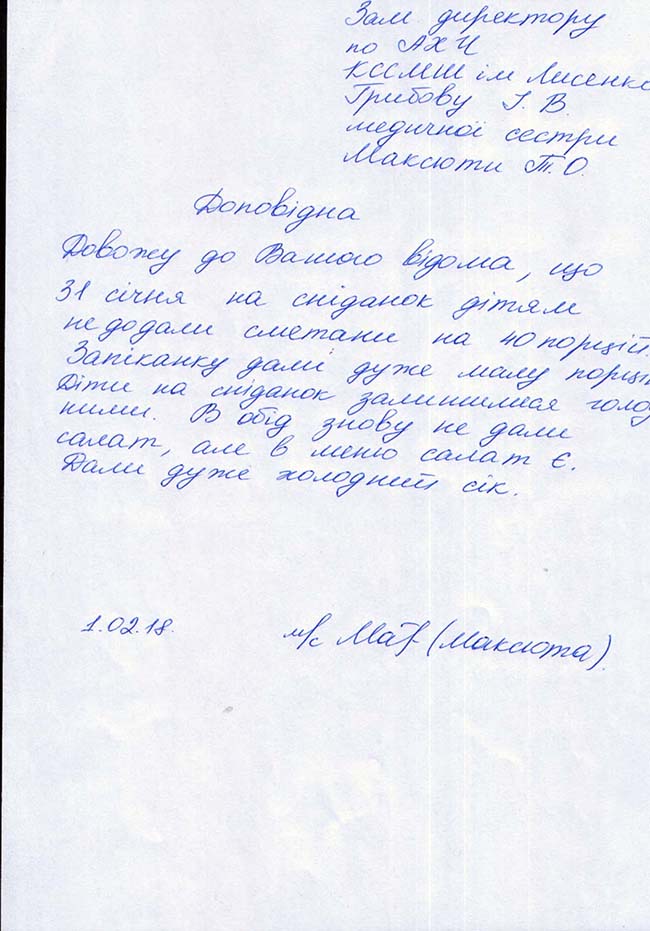 Зам директору
по АХЧ
КССМШ ім Лисенк
Грибову І. В.
медичної сестри
Максюти Т. О.
Доповідна
Довожу до Вашого відома, що
31 січня на сніданок дітям
не додали сметани на 40 порцій.
Запіканку дали дуже малу порці
Діти на сніданок залишилися голо
ними. В обід знову не дали
салат, але в меню салат є.
Дали дуже холодний сік.
1.02.18.
м/с (Максюта).